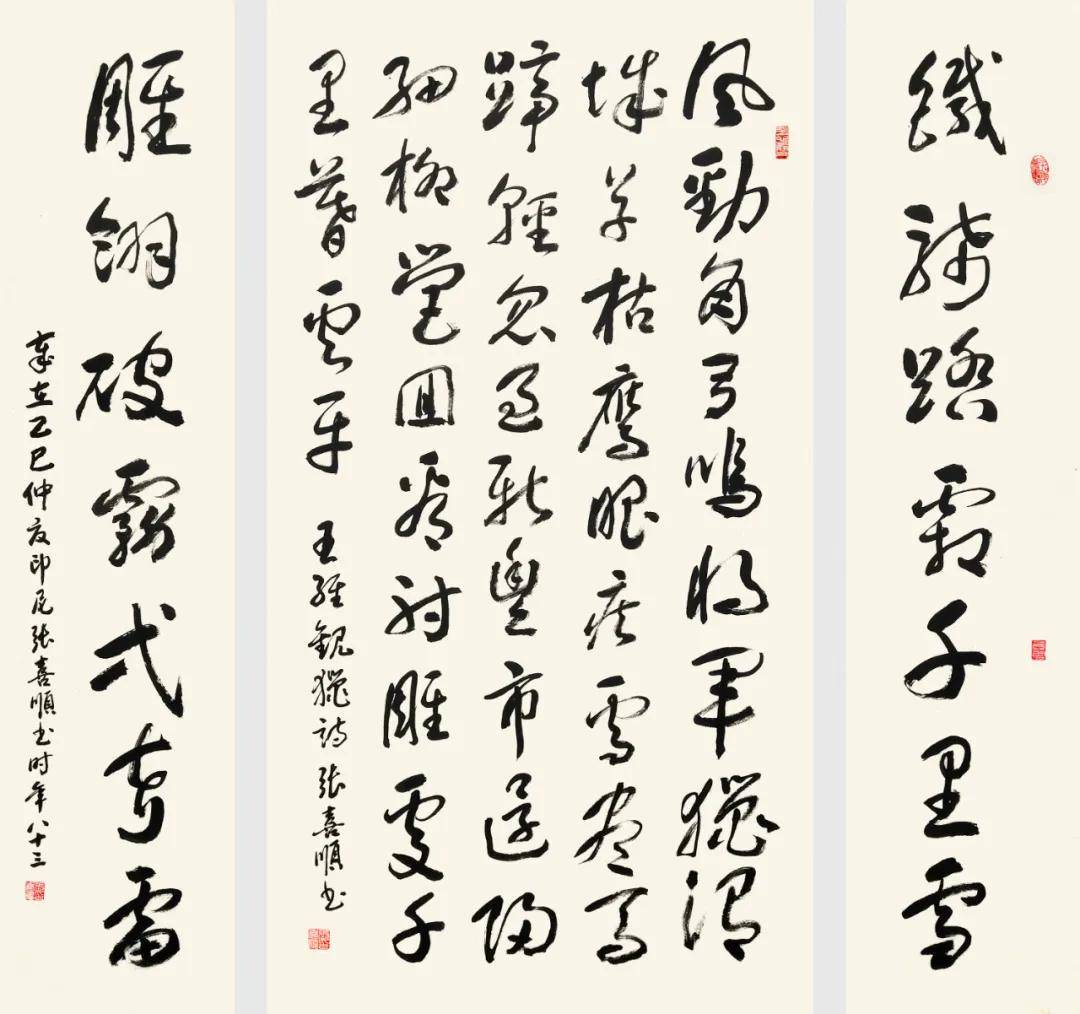 鐵騎踏霜千里雪
風勁角弓鳴将軍獵渭
城草枯鷹眼疾雪盡馬
蹄輕忽過新豐市還歸
細柳營囬看射雕處千
里暮雲平 王維觀獵詩 張喜順书
雕翎破霧弌声雷
歲在乙巳仲夏印尼張喜順书时年八十三